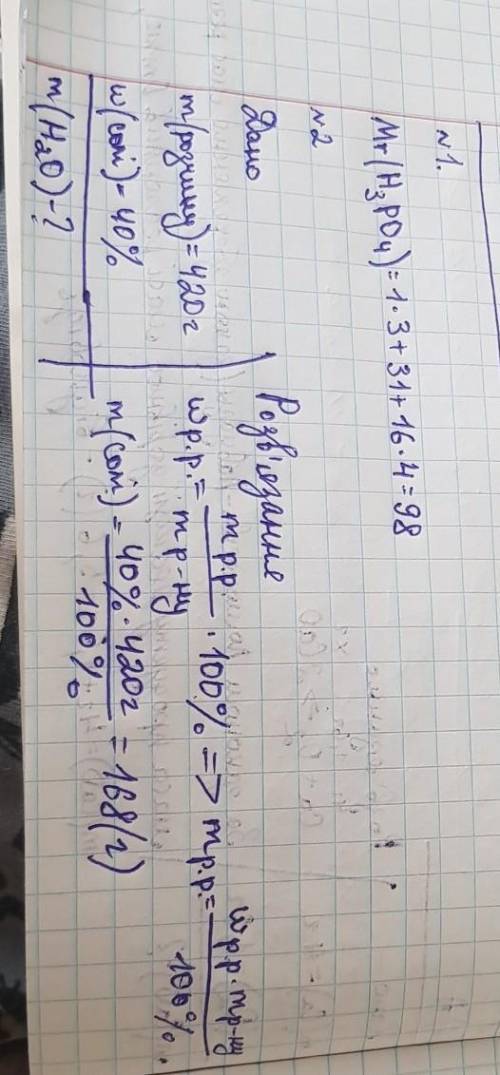 №1.
Mr(H₃PO₄)=1·3+31+16·4=98
№2
Дано
Розв'язання
m(розчину)=420г
w(солі)=40%
m(H₂O)-?
w р.р.= m р.р. / m р-ну · 100% => m р.р.= w р.р. · m р-ну / 100% .
m(солі) = 40% · 420г / 100% = 168(г)